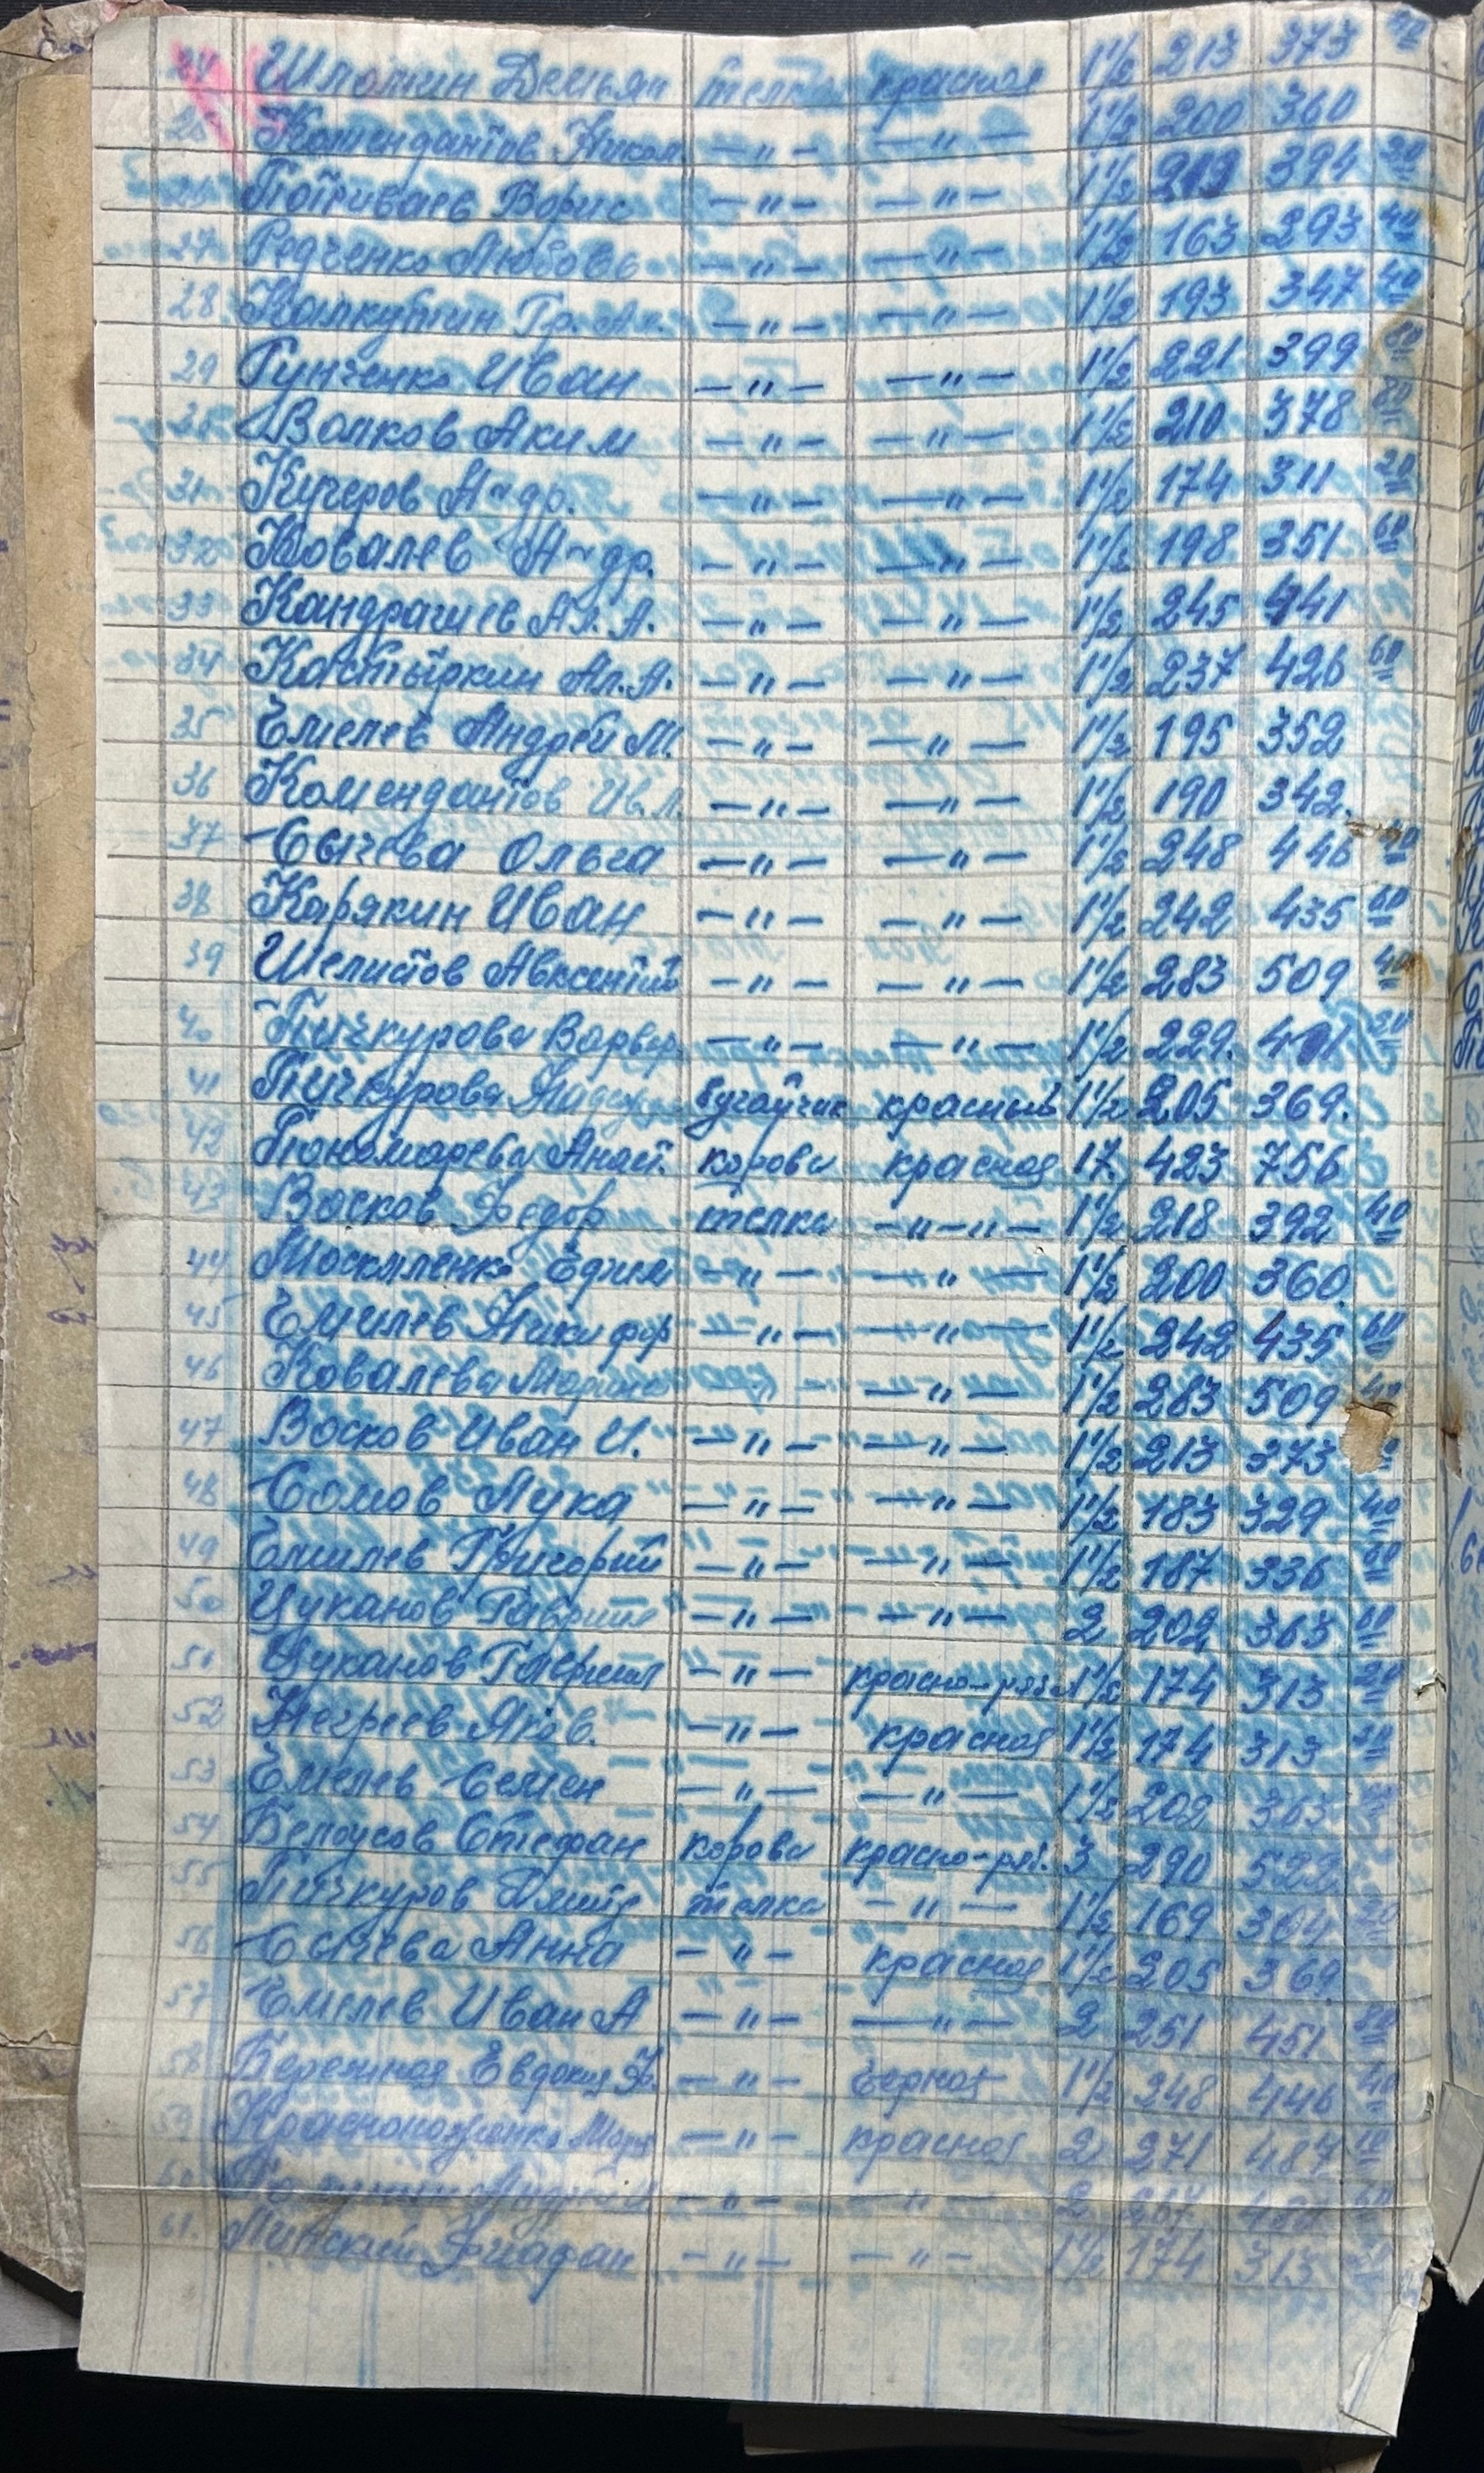 24 Шпотин Демьян телка красная 1 1/2 213 373 40
25 Комендантов Никол — " — — " — 1 1/2 200 360
Потриваев Борис — " — — " — 1 1/2 219 394 20
27 Редченко Любовь — " — — " — 1 1/2 163 293 40
28 Калкутин Гр. Ан. — " — — " — 1 1/2 193 347 40
29 Гунченко Иван — " — — " — 1 1/2 221 399
Волков Аким — " — — " — 1 1/2 210 378 80
31 Кучеров А-др. — " — — " — 1 1/2 174 311 20
32 Ковалев А-др. — " — — " — 1 1/2 198 351 60
33 Кандрашев Ал. А. — " — — " — 1 1/2 245 441
34 Костыркин Ал. А. — " — — " — 1 1/2 237 426 60
35 Емелев Андрей М. — " — — " — 1 1/2 195 352
36 Комендантов Ив. Л. — " — — " — 1 1/2 190 342
37 Сычева Ольга — " — — " — 1 1/2 248 446 40
38 Карякин Иван — " — — " — 1 1/2 242 435 60
39 Шелистов Авксентий — " — — " — 1 1/2 283 509 40
40 Пичкурова Варвар — " — — " — 1 1/2 229 411 20
41 Пичкурова бугайчик красный 1 1/2 205 369.
42 Пономарева Анаст. корова красная 17 423 756
43 Восков Федор телка — " — " — 1 1/2 218 392 40
44 Москаленко Ефим — " — — " — 1 1/2 200 360
45 Емилев Никифор — " — — " — 1 1/2 242 435 60
46 Ковалева Марина — " — 1 1/2 283 509 40
47 Восков Иван И. — " — — " — 1 1/2 213 373
48 Сомов Лука — " — — " — 1 1/2 183 329 40
49 Емилев Григорий — " — — " — 1 1/2 187 336 60
50 Цуканов Гаврил — " — — " — 2 202 363 60
51 Цуканов Гаврил — " — красно-ряба 1 1/2 174 313 20
52 Негреев Яков. — " — красная 1 1/2 174 313 20
53 Емелев Семен — " — — " — 1 1/2 202 363
54 Белоусов Стефан корова красно-ряб. 3 290 522
55 Пичкуров телка — " — 1 1/2 169 304 20
56 Сычева Анна — " — красная 1 1/2 205 369
57 Емелев Иван А — " — — " — 2 251 451 80
58 Бережная Евдокия Ф. — " — черная 1 1/2 248 446 40
59 Краснокоженко Мария — " — красная 2 271 487
60 Андрей — " — — " — 2
61. Минский — " — — " — 1 1/2 174 313